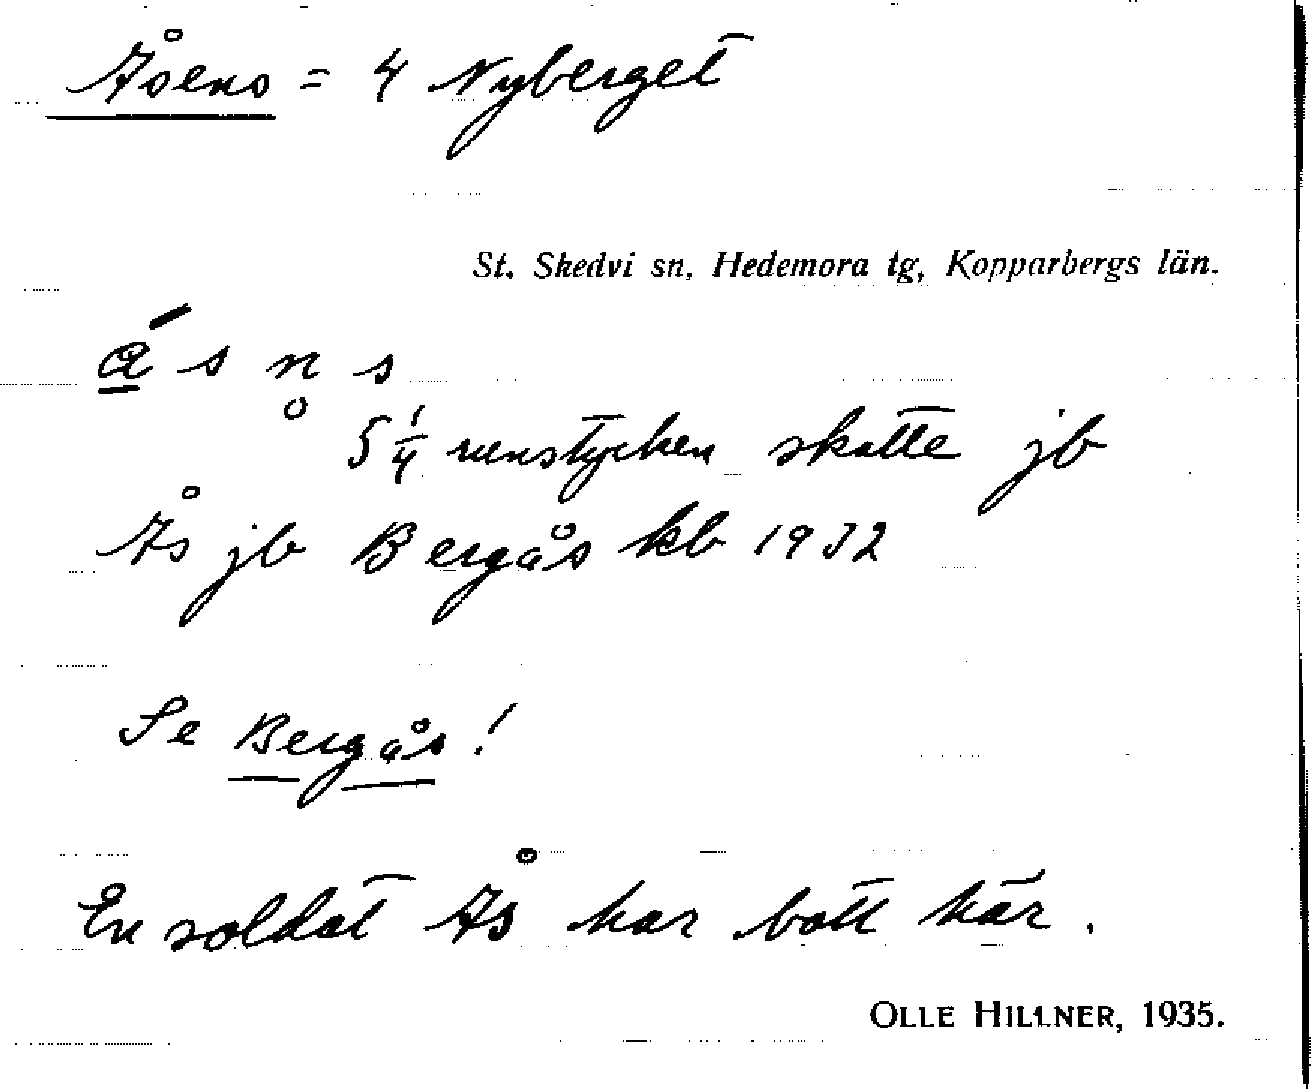 Åsens = 4 Nyberget
St. Skedvi sn, Hedemora tg, Kopparbergs län.
a s n s
5 1/4 runstycken skatte jb
Ås jb Bergås kb 1932
Se Bergås!
En soldat Ås har bott här.
OLLE HILLNER, 1935.